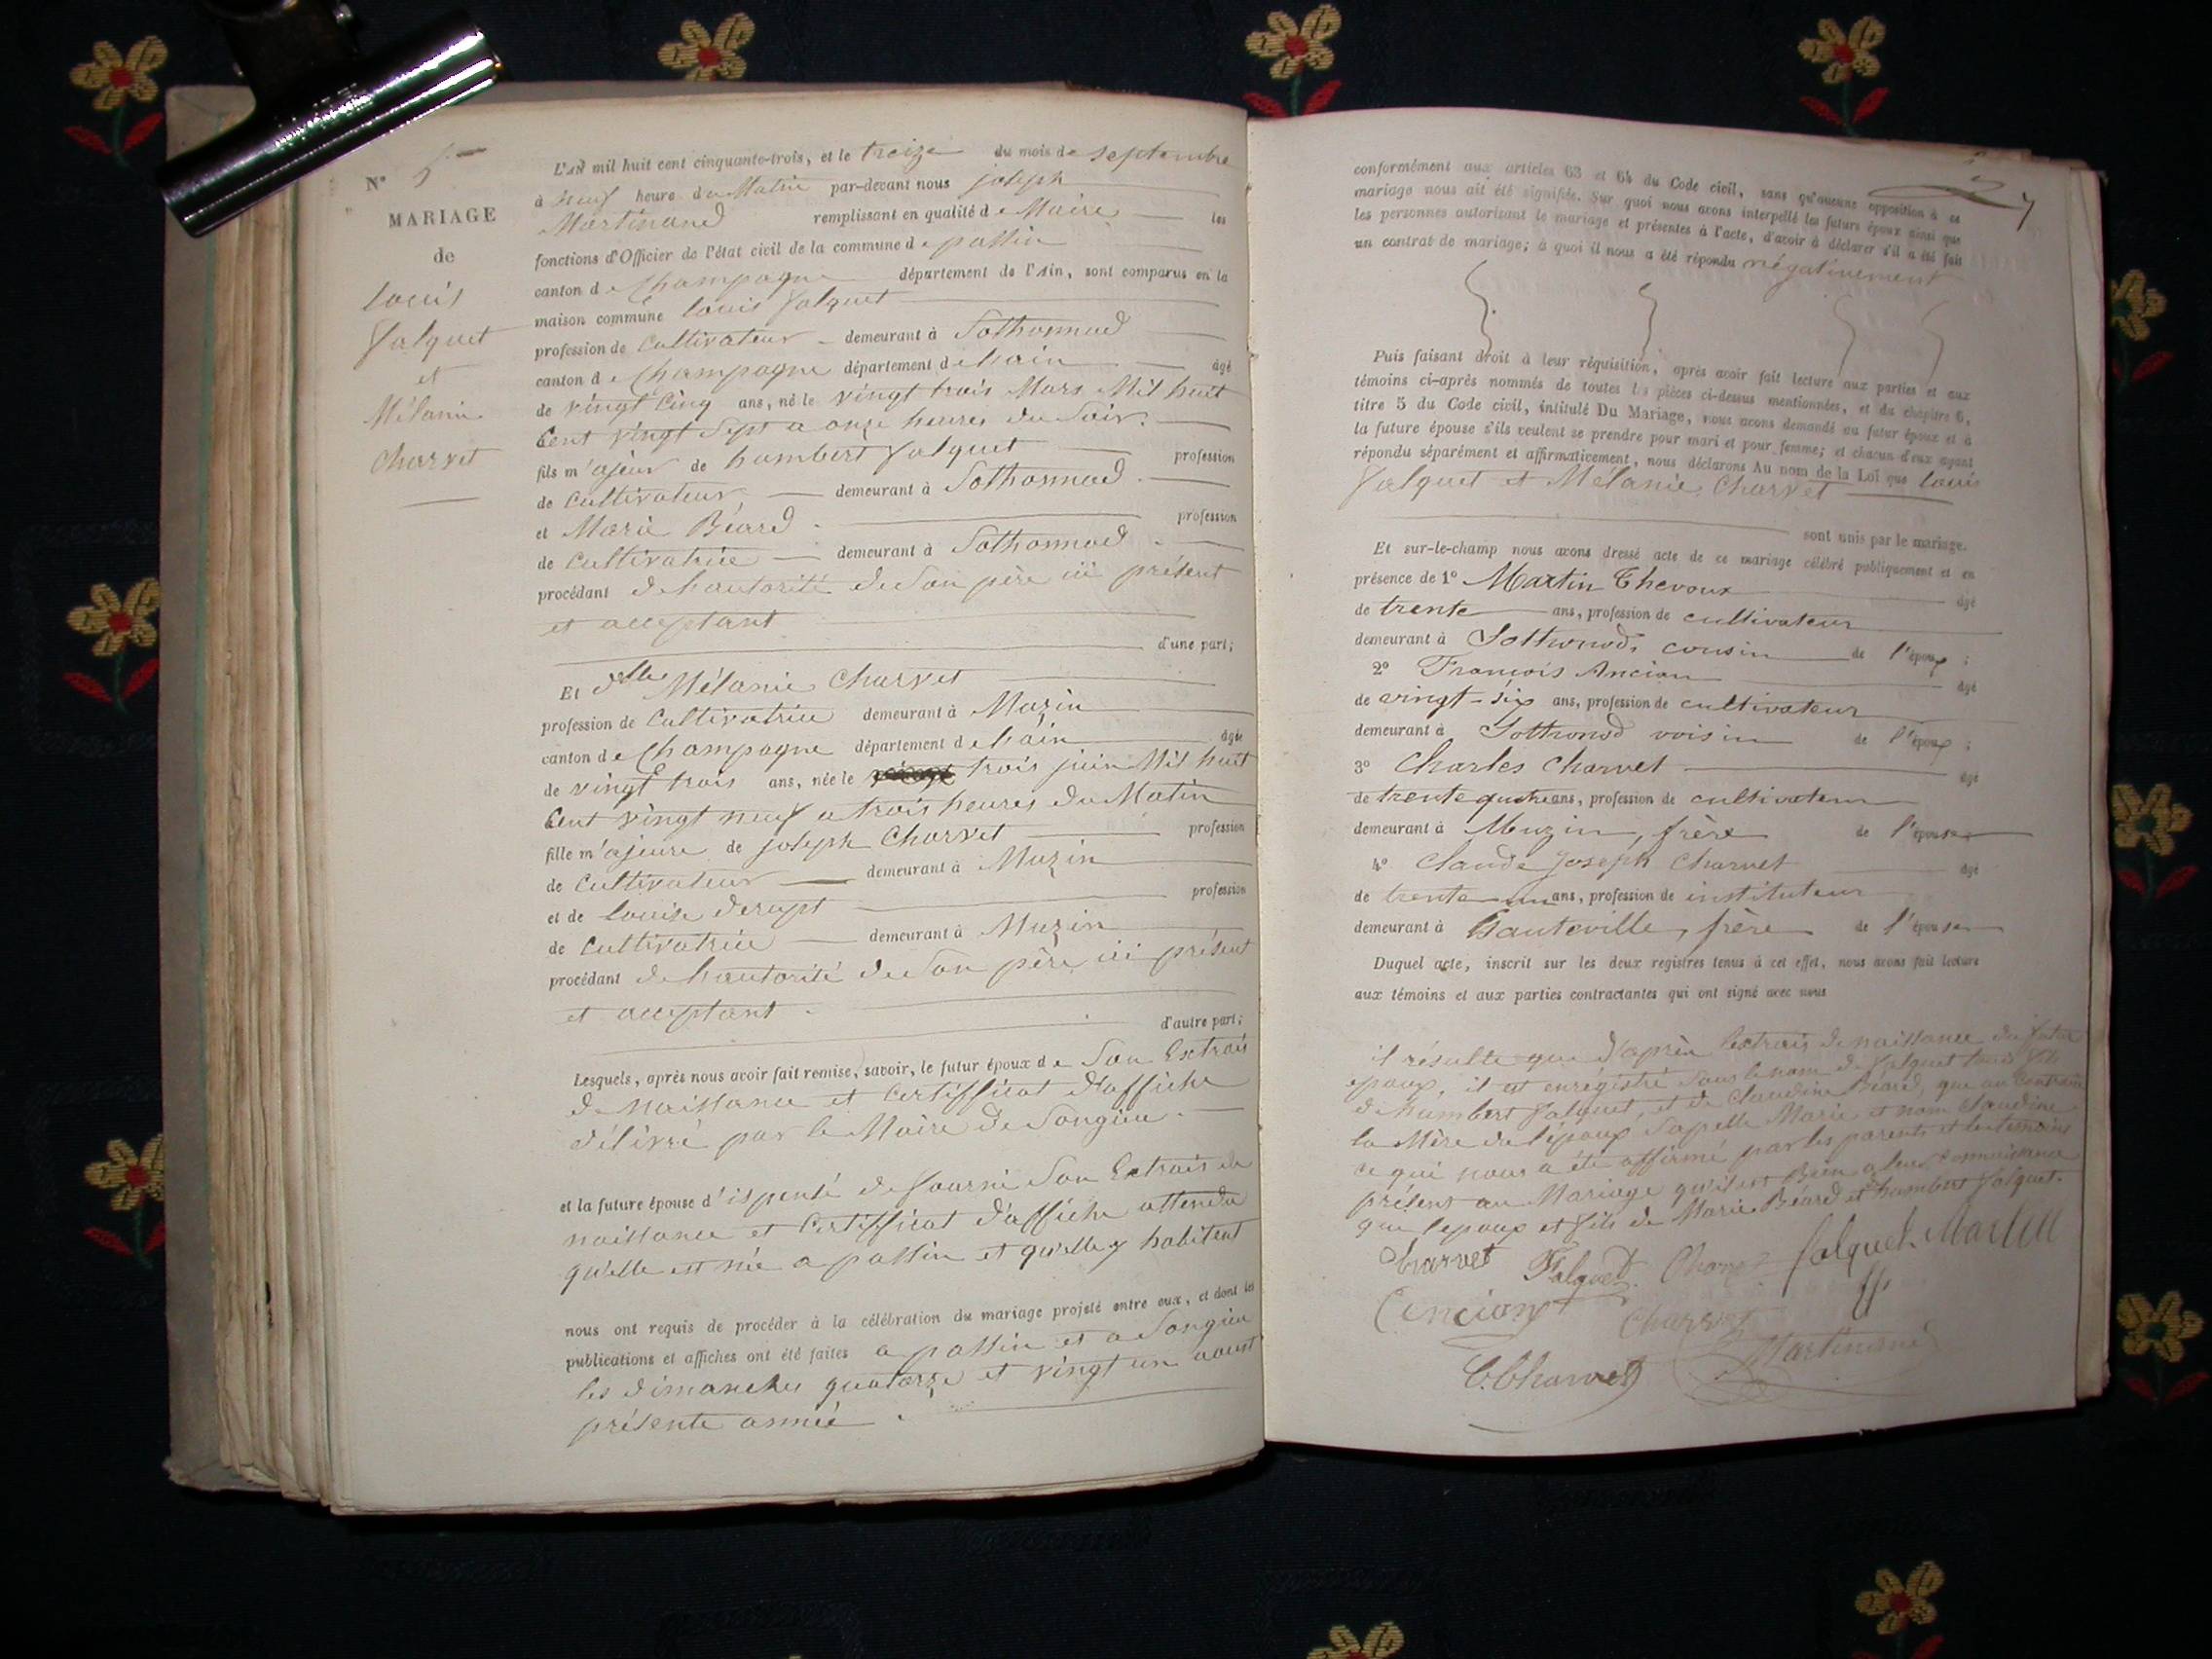 N° 5
MARIAGE
de
Louis
Falquet
et
Mélanie
Charvet
L'AN mil huit cent cinquante-trois, et le treize du mois de septembre
à neuf heure du Matin par-devant nous joseph
Martinand remplissant en qualité de Maire les
fonctions d'Officier de l'état civil de la commune de passin
canton de Champagne département de l'Ain, sont comparus en la
maison commune Louis falquet
profession de Cultivateur demeurant à Sothonnod
canton de Champagne département de lain âgé
de vingt cinq ans, né le vingt trois Mars Mil huit
Cent vingt Sept a onze heures du Soir.
fils m'ajeur de humbert falquet profession
de Cultivateur demeurant à Sothonnod.
et Marie Béard. profession
de Cultivatrice demeurant à Sothonnod.
procédant de l'autorité de Son père ici présent
et acceptant
d'une part;
Et dlle Mélanie Charvet
profession de Cultivatrice demeurant à Muzin
canton de Champagne département de lain âgée
de vingt trois ans, née le trois juin Mil huit
Cent vingt neuf a trois heures du Matin
fille m'ajeure de joseph Charvet profession
de Cultivateur demeurant à Muzin
et de Louise derupt profession
de Cultivatrice demeurant à Muzin
procédant de l'autorité de Son père ici présent
et acceptant.
d'autre part;
Lesquels, après nous avoir fait remise, savoir, le futur époux de Son Extrais
de Naissance et Certifficat d'affiche
délivré par le Maire de Songieu.
et la future épouse d'ispenté de fourni Son Extrais de
naissance et Certifficat d'affiche attendu
qu'elle est née a passin et qu'elle y habitent
nous ont requis de procéder à la célébration du mariage projeté entre eux, et dont les
publications et affiches ont été faites a passin et a Songieu
les dimanches quatorze et vingt un aoust
présente année.
7
conformément aux articles 63 et 64 du Code civil, sans qu'aucune opposition à ce
mariage nous ait été signifiée. Sur quoi nous avons interpellé les futurs époux ainsi que
les personnes autorisant le mariage et présentes à l'acte, d'avoir à déclarer s'il a été fait
un contrat de mariage; à quoi il nous a été répondu négativement
Puis faisant droit à leur réquisition, après avoir fait lecture aux parties et aux
témoins ci-après nommés de toutes les pièces ci-dessus mentionnées, et du chapitre 6,
titre 5 du Code civil, intitulé Du Mariage, nous avons demandé au futur époux et à
la future épouse s'ils veulent se prendre pour mari et pour femme; et chacun d'eux ayant
répondu séparément et affirmativement, nous déclarons Au nom de la Loi que Louis
Falquet et Mélanie Charvet
sont unis par le mariage.
Et sur-le-champ nous avons dressé acte de ce mariage célébré publiquement et en
présence de 1° Martin Thevoux âgé
de trente ans, profession de cultivateur
demeurant à Sothonod, cousin de l'époux;
2° François Ancian âgé
de vingt-six ans, profession de cultivateur
demeurant à Sothonod voisin de l'époux;
3° Charles Charvet âgé
de trente quatre ans, profession de cultivateur
demeurant à Muzin, frère de l'épouse
4° Claude Joseph Charvet âgé
de trente un ans, profession de instituteur
demeurant à Hauteville, frère de l'épouse
Duquel acte, inscrit sur les deux registres tenus à cet effet, nous avons fait lecture
aux témoins et aux parties contractantes qui ont signé avec nous
il résulte que d'après l'extrais de naissance du futur
epoux, il est enrégistré Sous le nom de falquet Louis fils
d'humbert falquet, et de Claudine Béard, que au Contraire
la Mère de l'époux Sapelle Marie et nom Claudine
ce qui nous a été affirmé par les parents et les temoins
présent au Mariage qu'il est Bien a leur Connaissance
que l'epoux et fils de Marie Béard et humbert falquet.
Charvet Falquet. Charvet falquet Martin
Cencian Charvet
C. Charvet Martinand